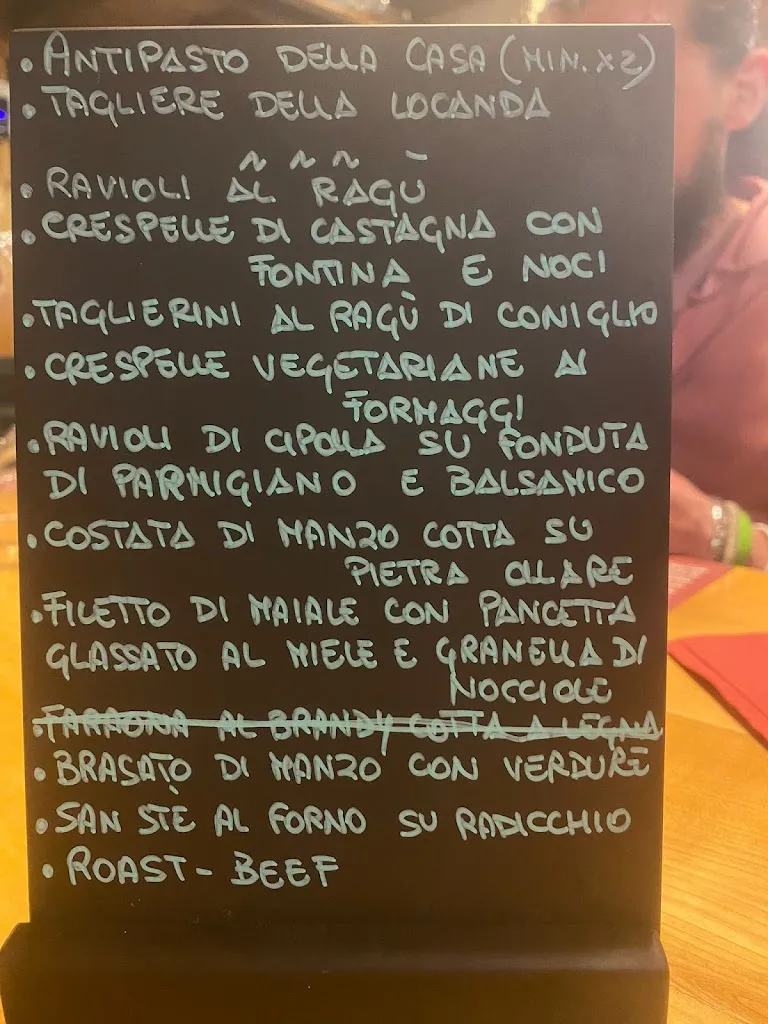 • ANTIPASTO DELLA CASA (MIN. X2)
• TAGLIERE DELLA LOCANDA
~ ~ ~ -
• RAVIOLI AL RAGÙ
• CRESPELLE DI CASTAGNA CON
FONTINA E NOCI
• TAGLIERINI AL RAGÙ DI CONIGLIO
• CRESPELLE VEGETARIANE AI
FORMAGGI
• RAVIOLI DI CIPOLLA SU FONDUTA
DI PARMIGIANO E BALSAMICO
• COSTATA DI MANZO COTTA SU
PIETRA OLLARE
• FILETTO DI MAIALE CON PANCETTA
GLASSATO AL MIELE E GRANELLA DI
NOCCIOLE
• FARAONA AL BRANDY COTTA A LEGNA
• BRASATO DI MANZO CON VERDURE
• SAN STÈ AL FORNO SU RADICCHIO
• ROAST-BEEF